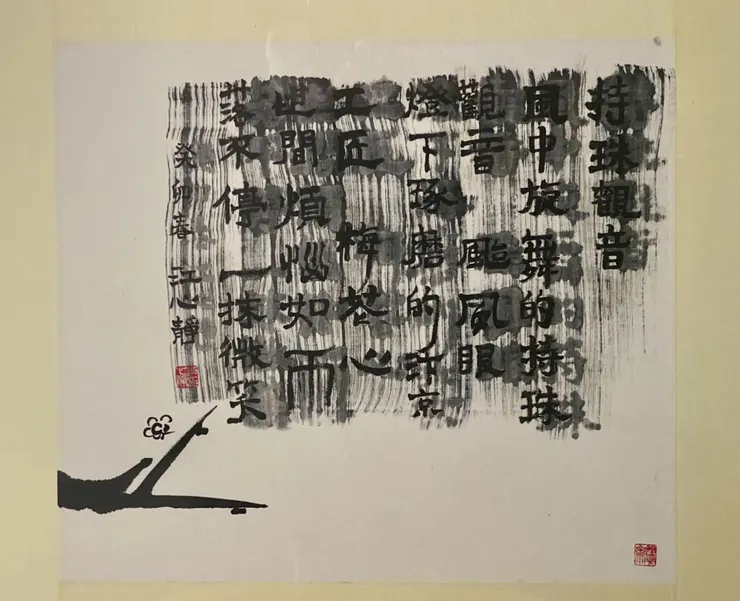 持珠觀音
風中旋舞的持珠
觀音 颱風眼
燈下琢磨的汴京
工匠 梅花心
世間煩惱如雨
落不停一抹微笑
癸卯春 江心靜